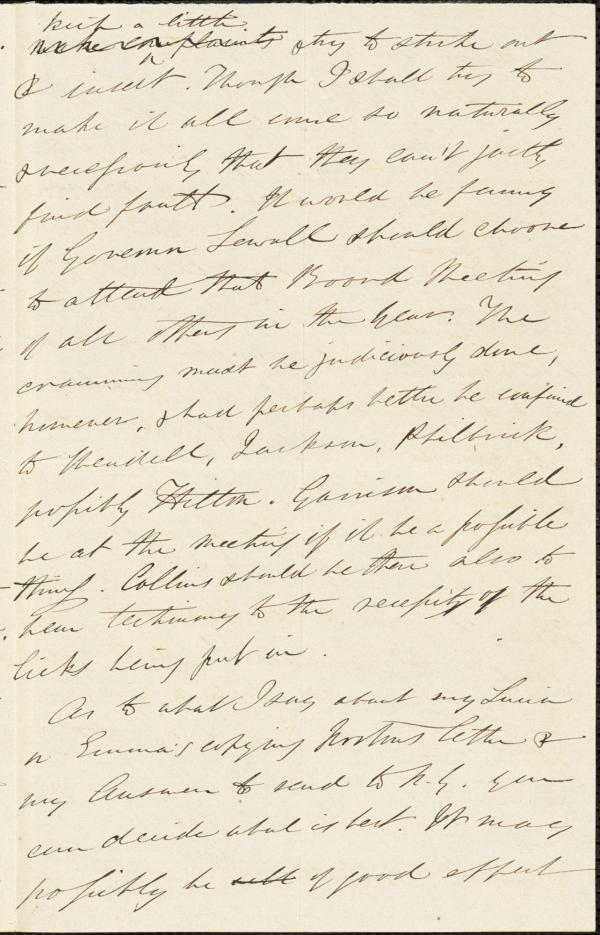 keep a little
make complaints & try to strike out
& insert. Though I shall try to
make it all come so naturally
& necessarily that they can't justly
find fault. It would be funny
if Governor Sewall should choose
to attend that Board Meeting
of all others in the year. The
cramming must be judiciously done,
however, & had perhaps better be confined
to Wendell, Jackson, Philbrick,
possibly Hilton. Garrison should
be at the meeting if it be a possible
thing. Collins should be there also to
bear testimony to the necessity of the
licks being put in.
As to what I say about my Lucia
or Emma's copying letter &
my Answer to send to N.Y. you
can decide what is best. It may
possibly be well of good effect